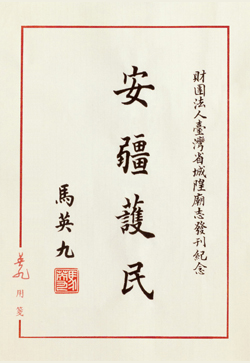 財團法人臺灣省城隍廟志發刊紀念
安疆護民
馬英九
英九
用箋